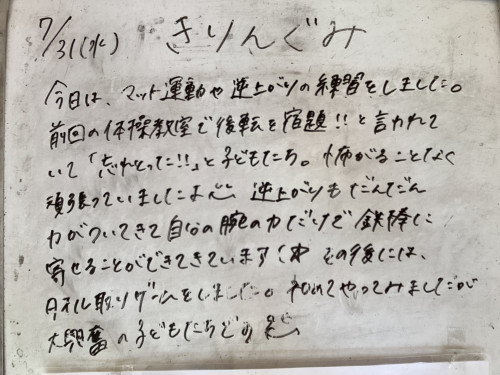 7/31(水) きりんぐみ
今日は、マット運動や逆上がりの練習をしました。
前回の体操教室で後転を宿題!!と言われて
いて「忘れとった!!」と子どもたち。怖がることなく
頑張っていましたよ 逆上がりもだんだん
力がついてきて自分の腕の力だけで鉄棒に
寄せることができてきています! その後には、
タオル取りゲームをしました。初めてやってみましたが
大興奮の子どもたちです